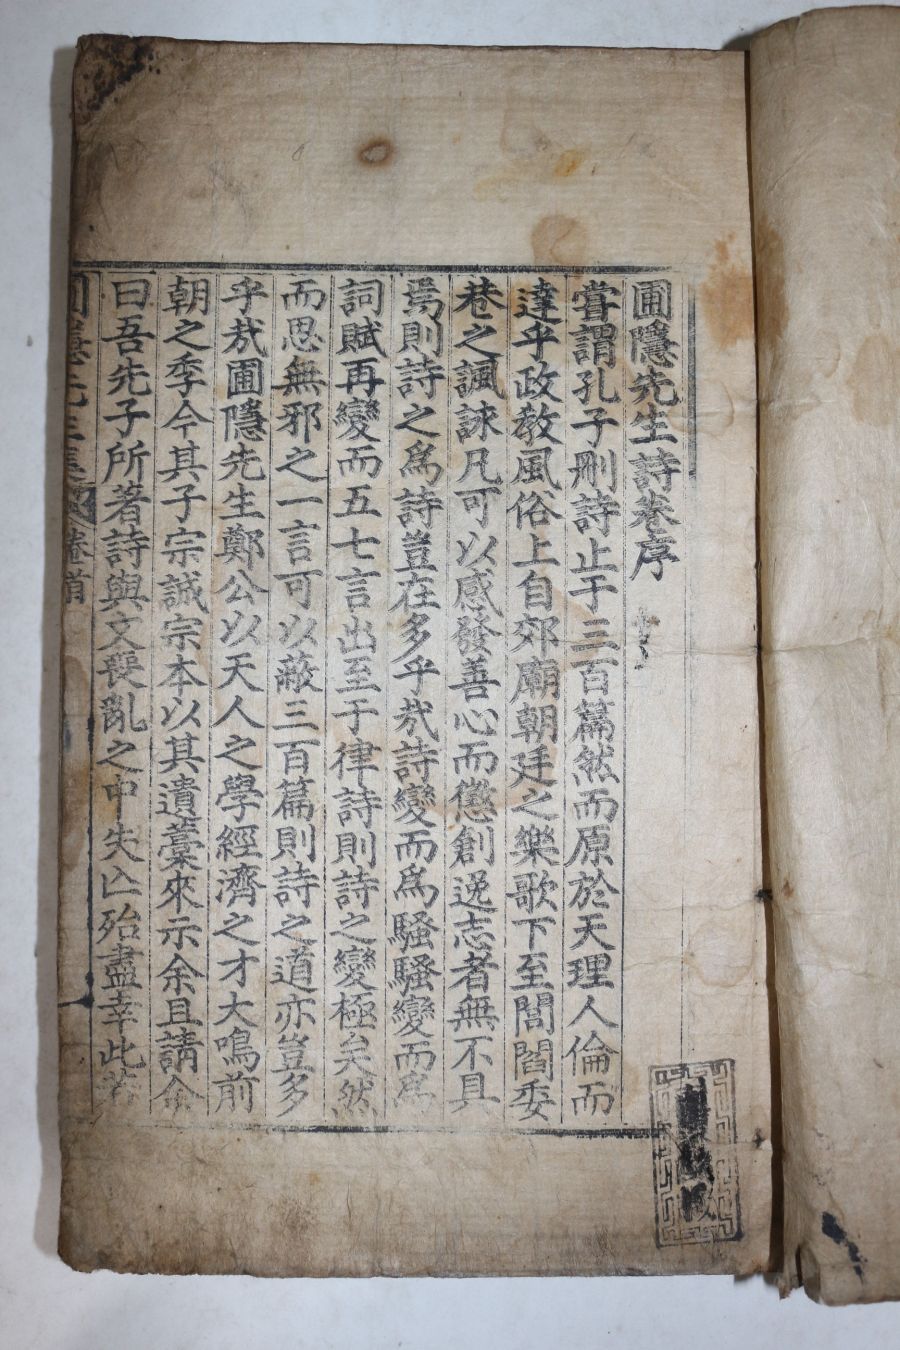 圃隱先生詩卷序
嘗謂孔子刪詩止于三百篇然而原於天理人倫而
達乎政教風俗上自郊廟朝廷之樂歌下至閭閻委
巷之諷詠凡可以感發善心而懲創逸志者無不具
焉則詩之爲詩豈在多乎㢤詩變而爲騷騷變而爲
詞賦再變而五七言出至于律詩則詩之變極矣然
而思無邪之一言可以蔽三百篇則詩之道亦豈多
乎㢤圃隱先生鄭公以天人之學經濟之才大鳴前
朝之季今其子宗誠宗本以其遺藁來示余且請余
曰吾先子所著詩與文喪亂之中失亾殆盡幸此若
圃隱先生集 卷首